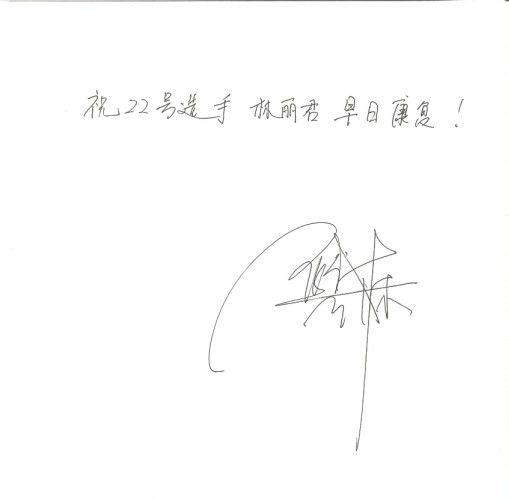 祝22号选手 林丽君 早日康复！